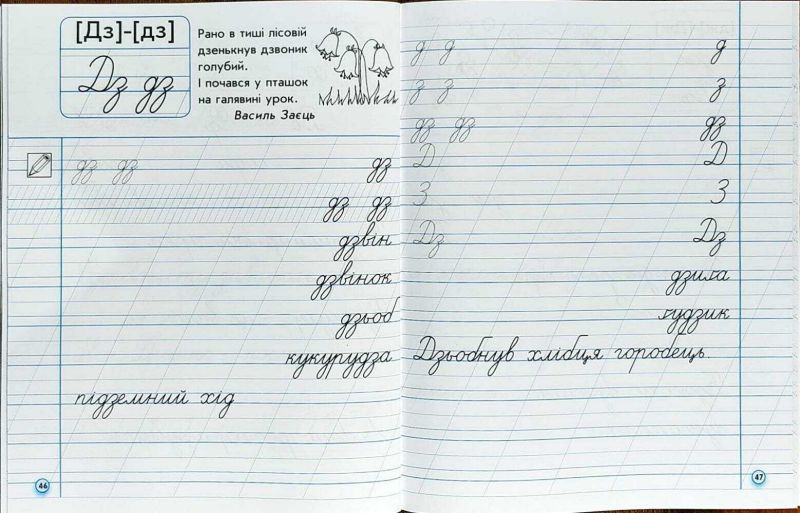 [Дз]-[дз]
Дз дз
Рано в тиші лісовій
дзенькнув дзвоник
голубий.
І почався у пташок
на галявині урок.
Василь Заєць
дз дз дз
дз дз
дзвін
дзвінок
дзьоб
кукурудза
підземний хід
46
д д д
з з з
дз дз дз
Д Д
З З
Дз Дз
дзиґа
ґудзик
Дзьобнув хлібця горобець
47